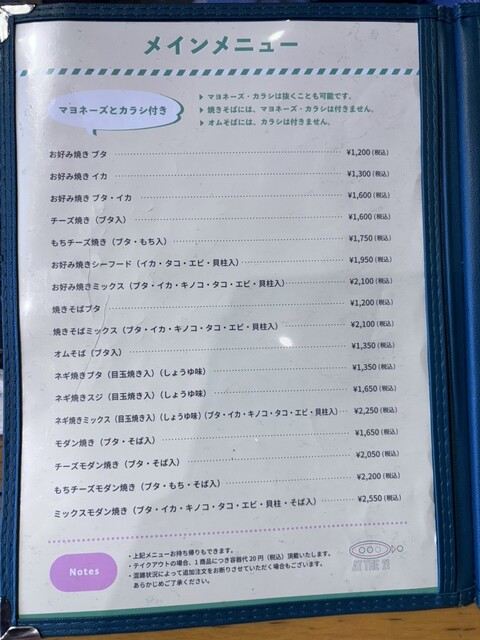 メインメニュー
マヨネーズとカラシ付き
▶ マヨネーズ・カラシは抜くことも可能です。
▶ 焼きそばには、マヨネーズ・カラシは付きません。
▶ オムそばには、カラシは付きません。
お好み焼き ブタ ¥1,200 (税込)
お好み焼き イカ ¥1,300 (税込)
お好み焼き ブタ・イカ ¥1,600 (税込)
チーズ焼き（ブタ入） ¥1,600 (税込)
もちチーズ焼き（ブタ・もち入） ¥1,750 (税込)
お好み焼きシーフード（イカ・タコ・エビ・貝柱入） ¥1,950 (税込)
お好み焼きミックス（ブタ・イカ・キノコ・タコ・エビ・貝柱入） ¥2,100 (税込)
焼きそばブタ ¥1,200 (税込)
焼きそばミックス（ブタ・イカ・キノコ・タコ・エビ・貝柱入） ¥2,100 (税込)
オムそば（ブタ入） ¥1,350 (税込)
ネギ焼きブタ（目玉焼き入）（しょうゆ味） ¥1,350 (税込)
ネギ焼きスジ（目玉焼き入）（しょうゆ味） ¥1,650 (税込)
ネギ焼きミックス（目玉焼き入）（しょうゆ味）（ブタ・イカ・キノコ・タコ・エビ・貝柱入） ¥2,250 (税込)
モダン焼き（ブタ・そば入） ¥1,650 (税込)
チーズモダン焼き（ブタ・そば入） ¥2,050 (税込)
もちチーズモダン焼き（ブタ・もち・そば入） ¥2,200 (税込)
ミックスモダン焼き（ブタ・イカ・キノコ・タコ・エビ・貝柱・そば入） ¥2,550 (税込)
Notes
・上記メニューお持ち帰りもできます。
・テイクアウトの場合、1商品につき容器代20円（税込）頂戴いたします。
・混雑状況によって追加注文をお断りさせていただく場合もございます。
あらかじめご了承ください。